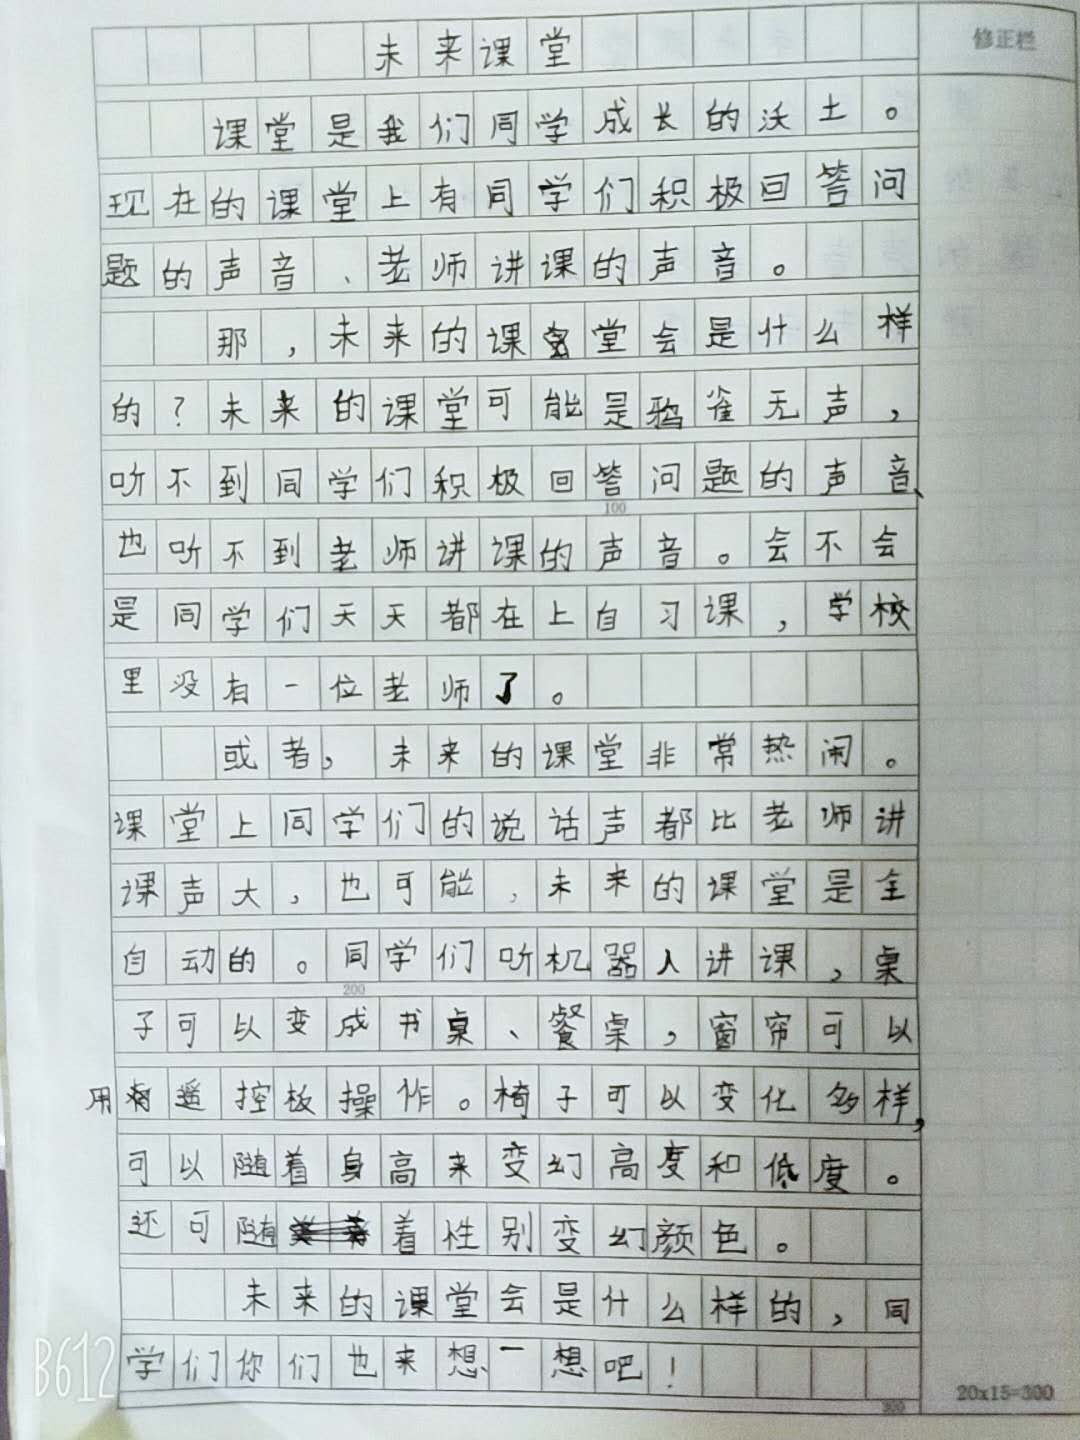 未来课堂
修正栏
课堂是我们同学成长的沃土。
现在的课堂上有同学们积极回答问
题的声音、老师讲课的声音。
那，未来的课堂会是什么样
的？未来的课堂可能是鸦雀无声，
听不到同学们积极回答问题的声音、
100
也听不到老师讲课的声音。会不会
是同学们天天都在上自习课，学校
里没有一位老师了。
或者，未来的课堂非常热闹。
课堂上同学们的说话声都比老师讲
课声大，也可能，未来的课堂是全
自动的。同学们听机器人讲课，桌
200
子可以变成书桌、餐桌，窗帘可以
用遥控板操作。椅子可以变化多样，
可以随着身高来变幻高度和低度。
还可随着性别变幻颜色。
未来的课堂会是什么样的，同
学们你们也来想一想吧！
300
20x15=300
B612